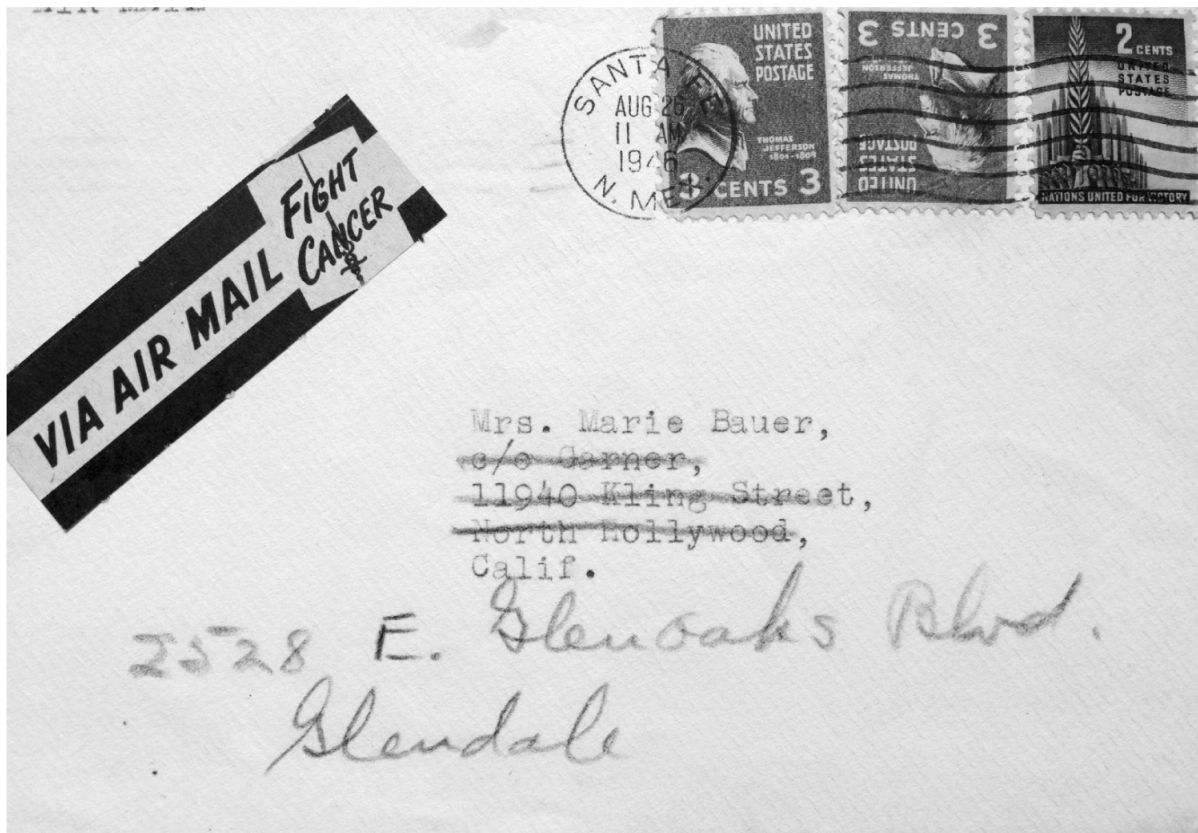 SANTA FE
AUG 26
11 AM
1946
N. MEX.
UNITED
STATES
POSTAGE
THOMAS
JEFFERSON
1801-1809
3 CENTS 3
3 CENTS 3
THOMAS
JEFFERSON
UNITED
STATES
POSTAGE
2 CENTS
UNITED
STATES
POSTAGE
NATIONS UNITED FOR VICTORY
VIA AIR MAIL
FIGHT
CANCER
Mrs. Marie Bauer,
c/o Garner,
11940 Kling Street,
North Hollywood,
Calif.
2528 E. Glenoaks Blvd.
Glendale